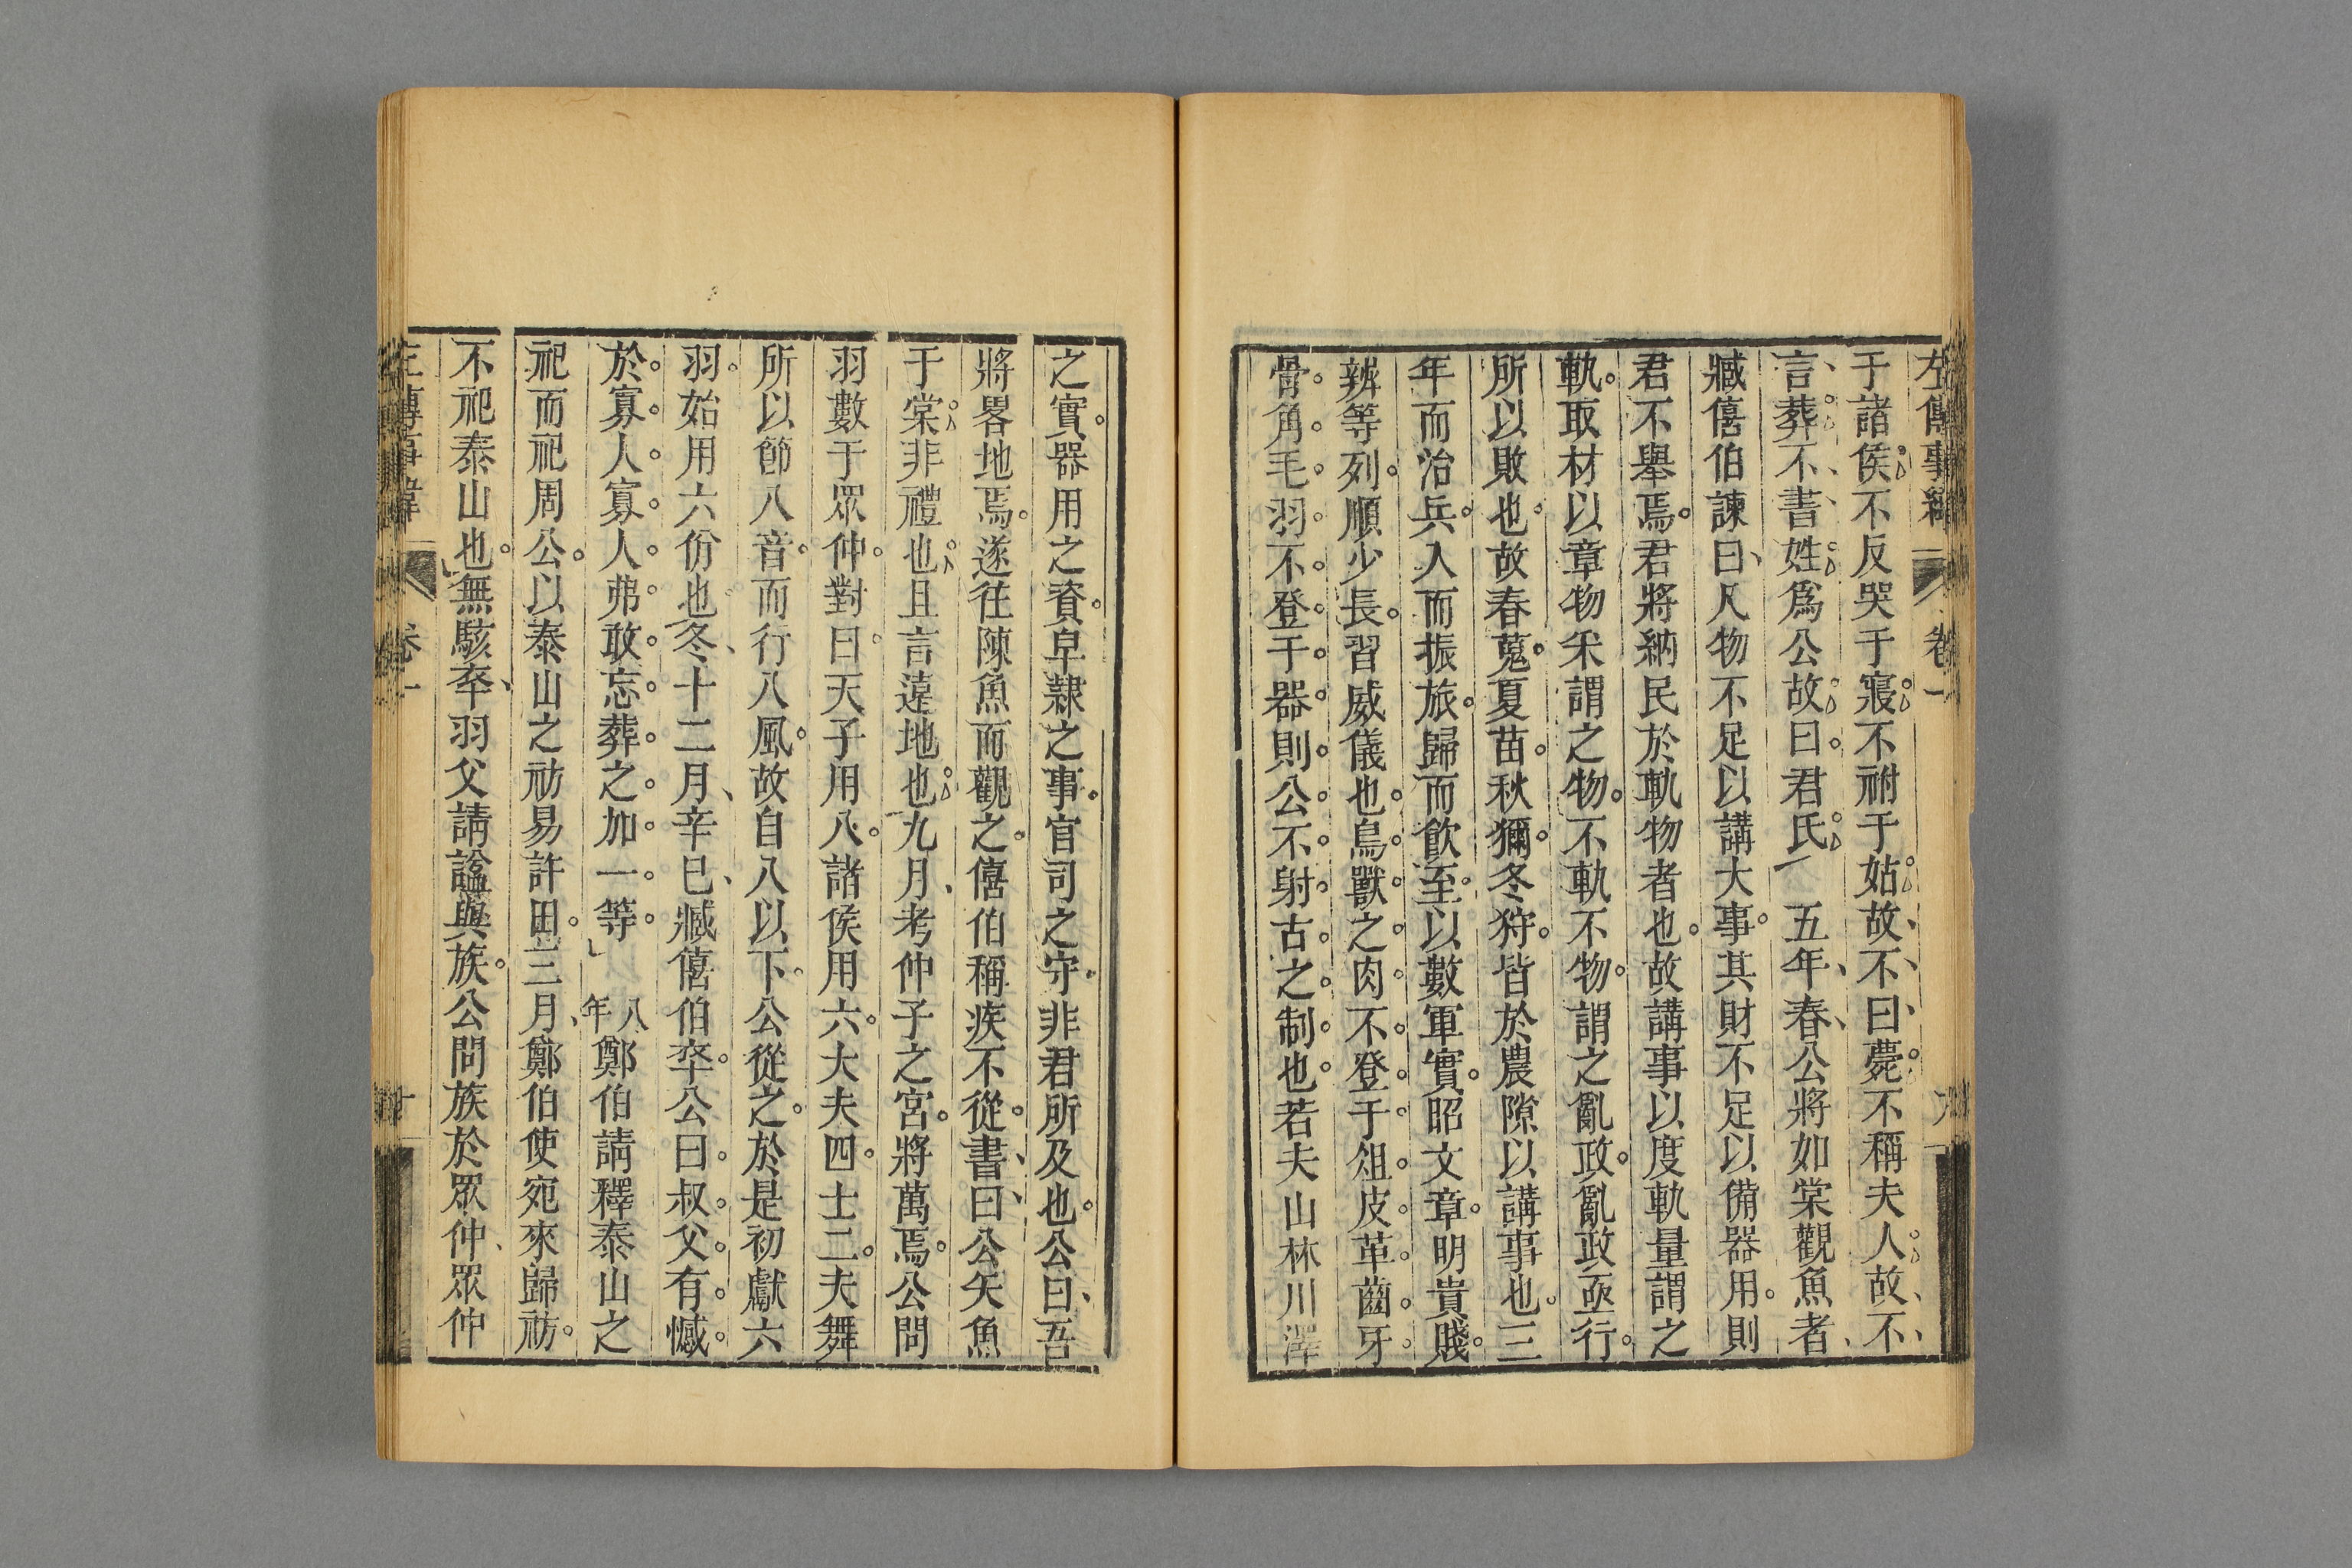 左傳事緯 卷一 九
于諸侯不反哭于寢不祔于姑故不曰薨不稱夫人故不
言葬不書姓爲公故曰君氏 五年春公將如棠觀魚者
臧僖伯諫曰凡物不足以講大事其財不足以備器用則
君不舉焉君將納民於軌物者也故講事以度軌量謂之
軌取材以章物采謂之物不軌不物謂之亂政亂政亟行
所以敗也故春蒐夏苗秋獮冬狩皆於農隙以講事也三
年而治兵入而振旅歸而飲至以數軍實昭文章明貴賤
辨等列順少長習威儀也鳥獸之肉不登于俎皮革齒牙
骨角毛羽不登于器則公不射古之制也若夫山林川澤
之實器用之資皁隸之事官司之守非君所及也公曰吾
將畧地焉遂往陳魚而觀之僖伯稱疾不從書曰公矢魚
于棠非禮也且言遠地也九月考仲子之宮將萬焉公問
羽數于眾仲對曰天子用八諸侯用六大夫四士二夫舞
所以節八音而行八風故自八以下公從之於是初獻六
羽始用六佾也冬十二月辛巳臧僖伯卒公曰叔父有憾
於寡人寡人弗敢忘葬之加一等 八年鄭伯請釋泰山之
祀而祀周公以泰山之祊易許田三月鄭伯使宛來歸祊
不祀泰山也無駭卒羽父請諡與族公問族於眾仲眾仲
左傳事緯 卷一 十